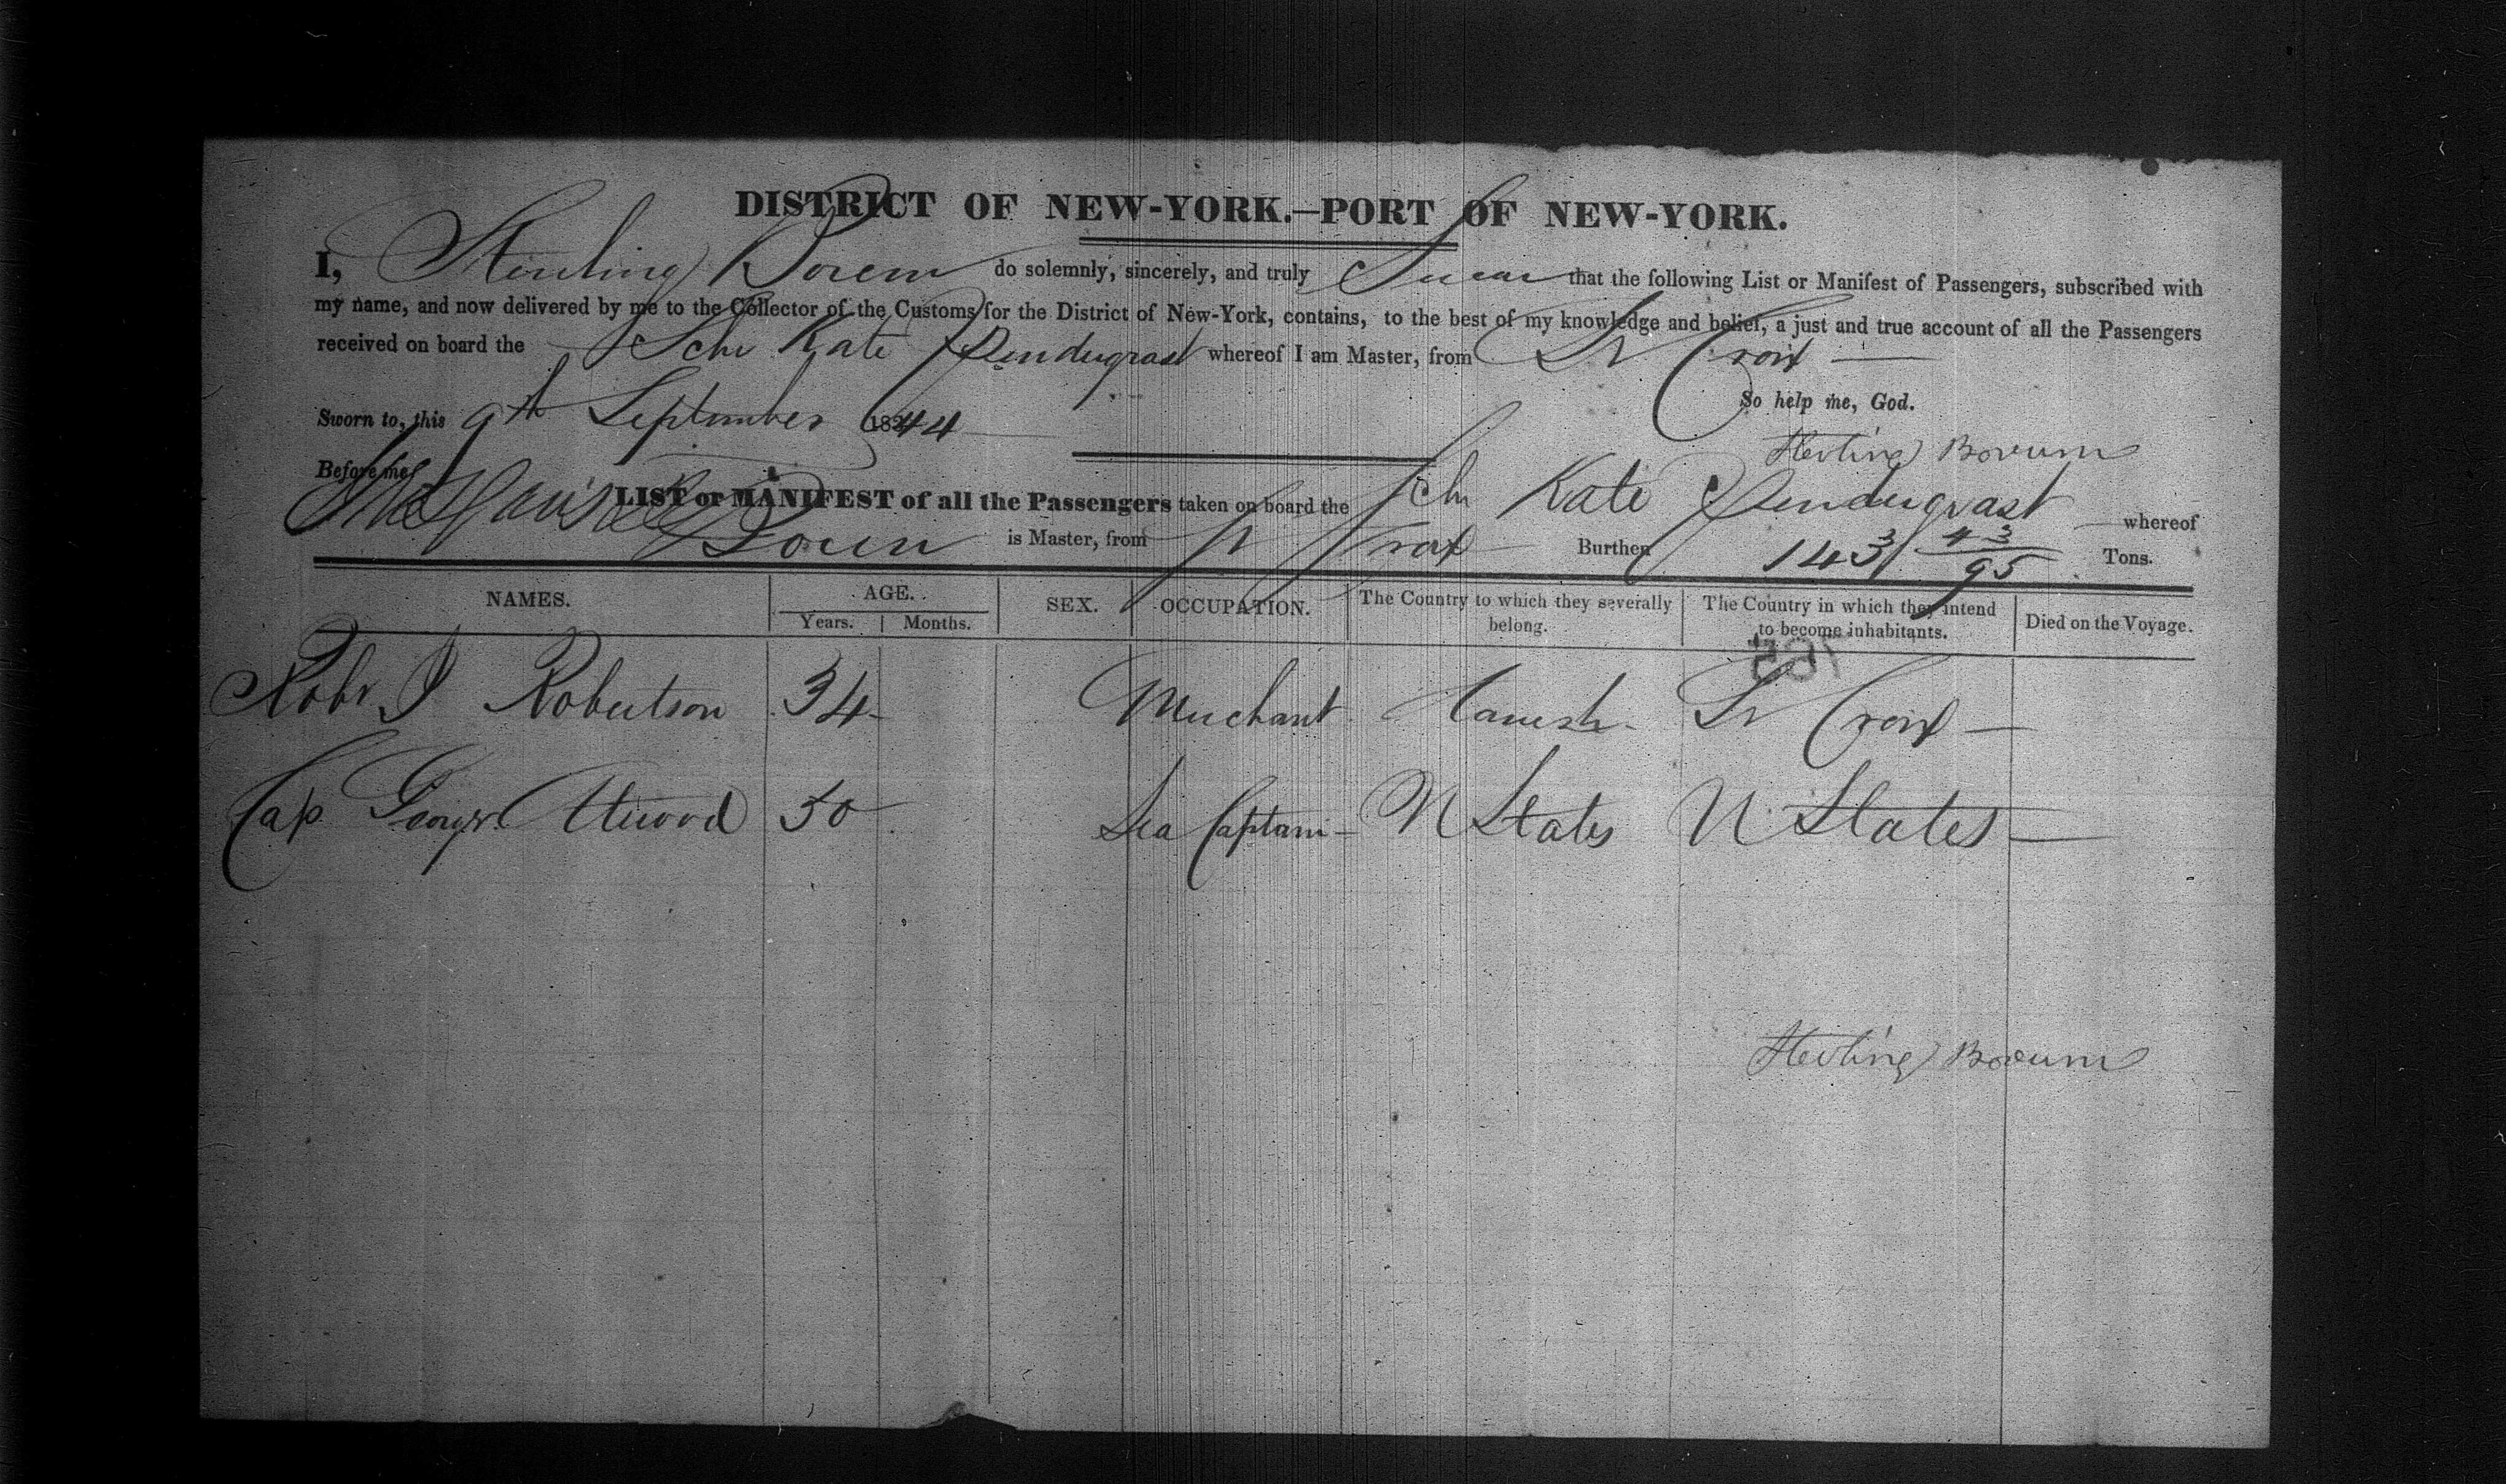 DISTRICT OF NEW-YORK.—PORT OF NEW-YORK.
I, Sterling Borem do solemnly, sincerely, and truly Swear that the following List or Manifest of Passengers, subscribed with
my name, and now delivered by me to the Collector of the Customs for the District of New-York, contains, to the best of my knowledge and belief, a just and true account of all the Passengers
received on board the Schr Kate Pendergrast whereof I am Master, from St Croix
So help me, God.
Sworn to, this 9th September 1844
Sterling Borum
Before me,
LIST or MANIFEST of all the Passengers taken on board the Schr Kate Pendergrast whereof
is Master, from St Croix Burthen 143 43/95 Tons.
NAMES. AGE. SEX. OCCUPATION. The Country to which they severally belong. The Country in which they intend to become inhabitants. Died on the Voyage.
Years. Months.
Robt Robertson 34 Merchant St Croix
Cap George Atwood 50 Sea Captain U States U States
Sterling Borum